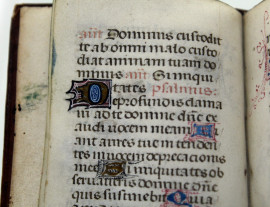 añ Dominus custodit
te ab omni malo custo
diat animam tuam do
minus añ Si iniqui
tates psalmus.
De profundis clama
ui ad te domine dñe ex
audi uocem meam
ant aures tue intenden
tes uocem deprecacionis
mee Si iniquitates ob
seruaueris domine dñe
quis sustinebit Quia